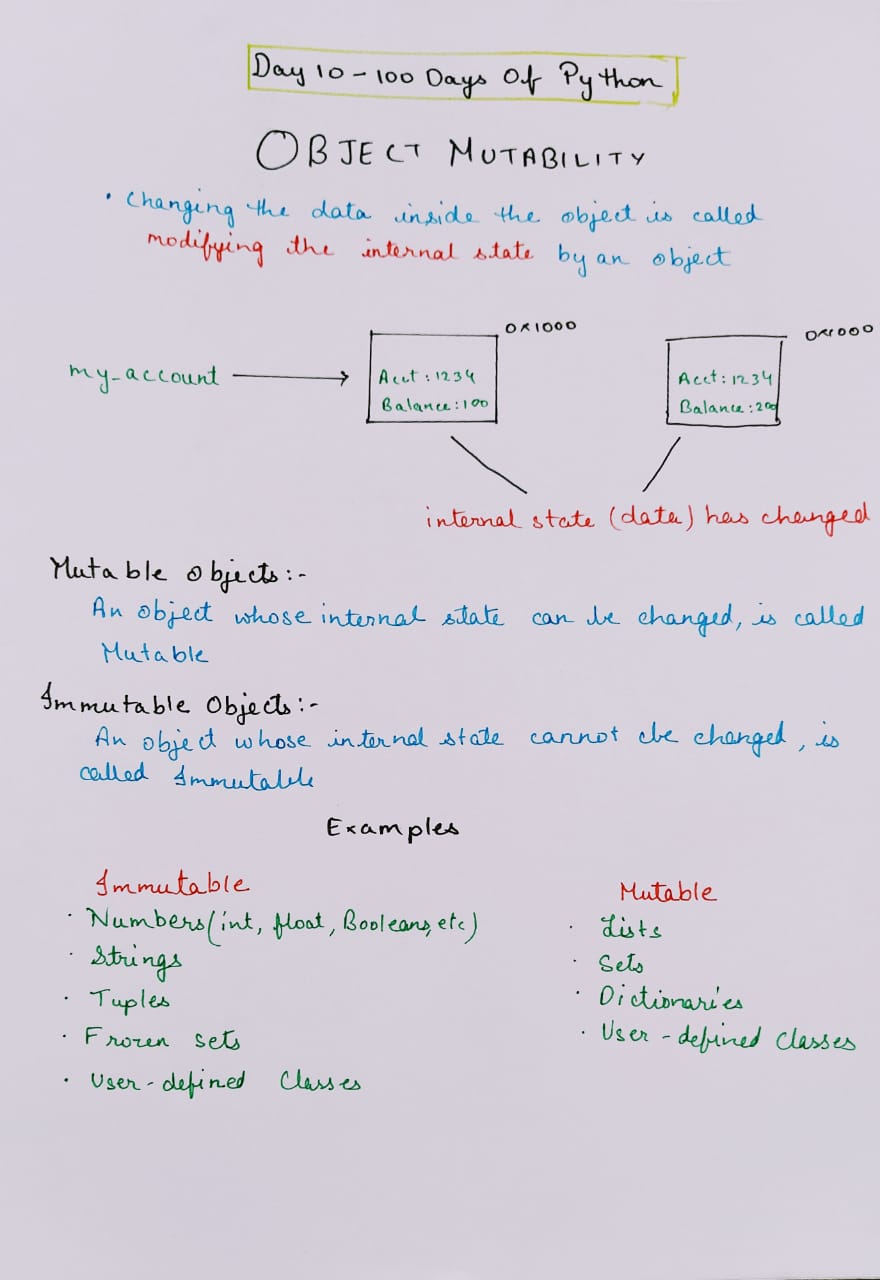 Day 10 - 100 Days Of Python
OBJECT MUTABILITY
• Changing the data inside the object is called
modifying the internal state by an object
0x1000
0x1000
my_account
Acct : 1234
Balance : 100
Acct : 1234
Balance : 200
internal state (data) has changed
Mutable Objects :-
An object whose internal state can be changed, is called
Mutable
Immutable Objects :-
An object whose internal state cannot be changed, is
called Immutable
Examples
Immutable
· Numbers (int, float, Booleans, etc)
· Strings
· Tuples
· Frozen sets
· User-defined Classes
Mutable
· Lists
· Sets
· Dictionaries
· User-defined Classes